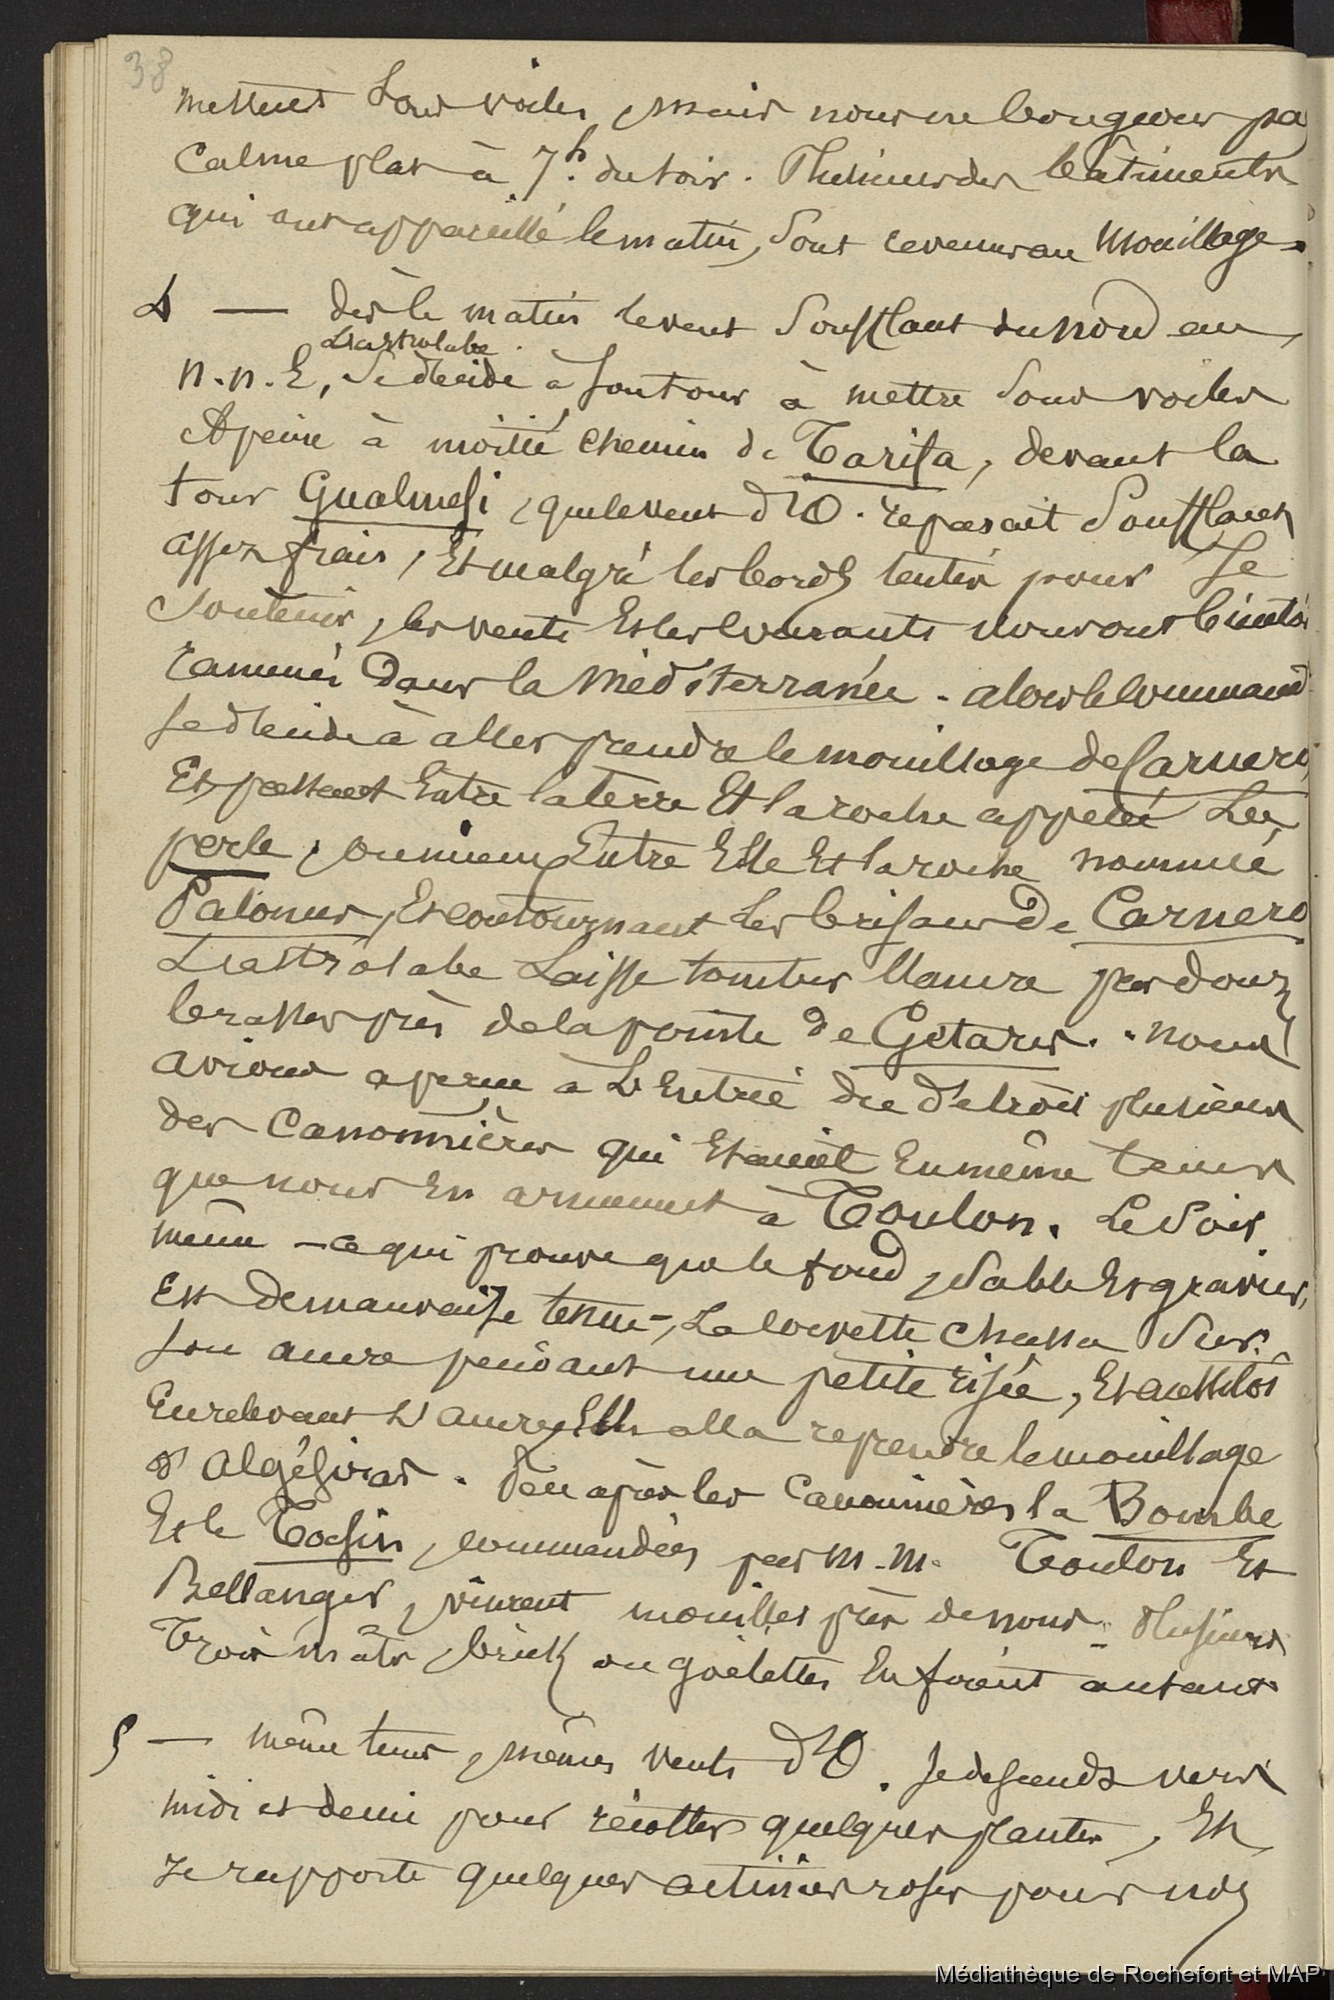 38
mettent sous voiles, mais nous ne bougeons pas
Calme plat à 7h. du soir. Plusieurs des bâtiments
qui ont appareillé le matin, sont revenus au mouillage.
4 — dès le matin le vent soufflant du nord au
L'astrolabe
n.n.E, se décide à son tour à mettre sous voiles
A peine à moitié chemin de Tarifa, devant la
tour Gualmesi, que le vent d'O. repassait soufflant
assez frais, Et malgré les bords tentés pour se
soutenir, les vents Et les courants nous ont bientôt
ramenés dans la Méditerranée. alors le command
se décide à aller prendre le mouillage de Carnero,
Et passant Entre la terre Et la roche appelé La
perle, ou mieux Entre Elle Et la roche nommée
Palomas, Et contournant les brisans de Carnero
L'astrolabe laisse tomber l'ancre par douz
brasses près de la pointe de Getares. nous
avions aperçu à L'Entrée du détroit plusieurs
des canonnières qui Etaient En même tems
que nous En armement à Toulon. Le soir
même — ce qui prouve que le fond, sable Et gravier,
Est de mauvaise tenue —, La corvette chassa sur
son ancre pendant une petite risée, Et aussitôt
En relevant L'ancre, Elle alla reprendre le mouillage
d'Algésiras. Peu après les canonnières la Bombe
Et le Tocsin, commandées par M.M. Toulon Et
Bellanger, vinrent mouiller près de nous. Plusieurs
Trois mâts, bricks ou goëlettes En firent autant.
5 — même tems, mêmes vents d'O. Je descends vers
midi et demi pour récolter quelques plantes, Et
Je rapporte quelques actinies roses pour nos
Médiathèque de Rochefort et MAP